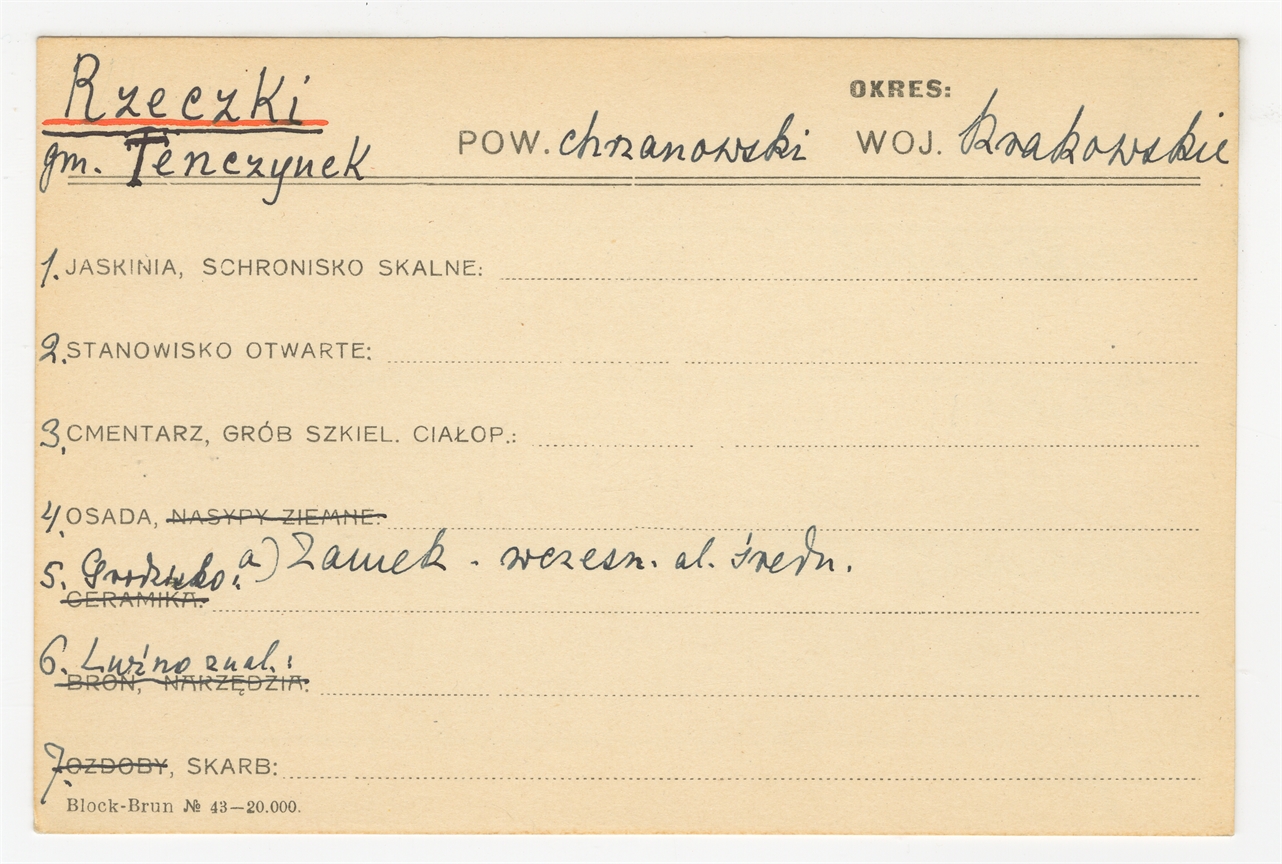 Rzeczki
OKRES:
gm. Tenczynek POW. chrzanowski WOJ. krakowskie
1. JASKINIA, SCHRONISKO SKALNE:
2. STANOWISKO OTWARTE:
3. CMENTARZ, GRÓB SZKIEL. CIAŁOP.:
4. OSADA, NASYPY ZIEMNE:
5. Grodzisko: a) Zamek - wczesn. al. średn.
CERAMIKA:
6. Luźno znal.:
BROŃ, NARZĘDZIA:
7. OZDOBY, SKARB:
Block-Brun № 43—20.000.